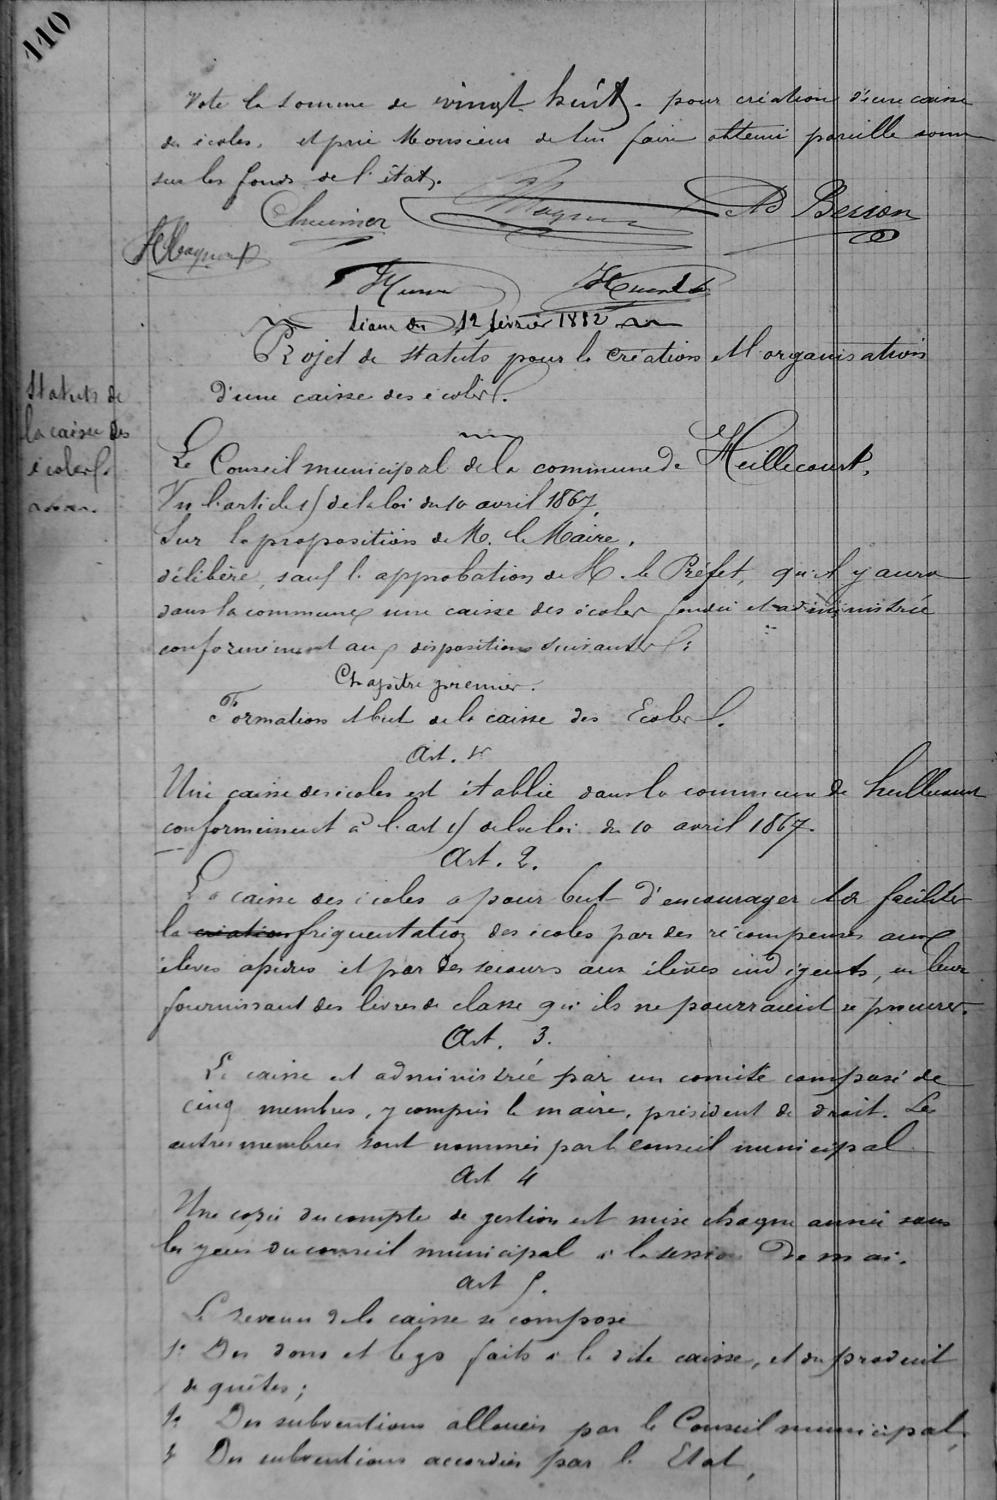 110
Vote la somme de vingt huit f. pour création d'une caisse
des écoles, et prie Monsieur de lui faire obtenir pareille somme
sur les fonds de l'état.
Magnin Ad Besson
HMagnin
Séance du 12 février 1882
Projet de statuts pour la création et l'organisation
d'une caisse des écoles.
Statuts de
la caisse des
écoles.
Le Conseil municipal de la commune de Heillecourt,
Vu l'article 15 de la loi du 10 avril 1867,
Sur la proposition de M. le Maire,
délibère, sauf l'approbation de M. le Préfet, qu'il y aura
dans la commune une caisse des écoles fondée et administrée
conformément aux dispositions suivantes :
Chapitre premier.
Formation et but de la caisse des Ecoles.
Art. 1r
Une caisse des écoles est établie dans la commune de heillecourt
conformément à l'art 15 de la loi du 10 avril 1867.
Art. 2.
La caisse des écoles a pour but d'encourager et de faciliter
la création fréquentation des écoles par des récompenses aux
élèves assidus et par des secours aux élèves indigents, en leur
fournissant des livres de classe qu'ils ne pourraient se procurer.
Art. 3.
La caisse est administrée par un comité composé de
cinq membres, y compris le maire, président de droit. Les
autres membres sont nommés par le conseil municipal
Art 4
Une copie du compte de gestion est mise chaque année sous
les yeux du conseil municipal à la session de mai.
art 5.
Le revenu de la caisse se compose
1º Des dons et legs faits à la dite caisse, et du produit
de quêtes ;
2º Des subventions allouées par le Conseil municipal,
3º Des subventions accordées par l'Etat,